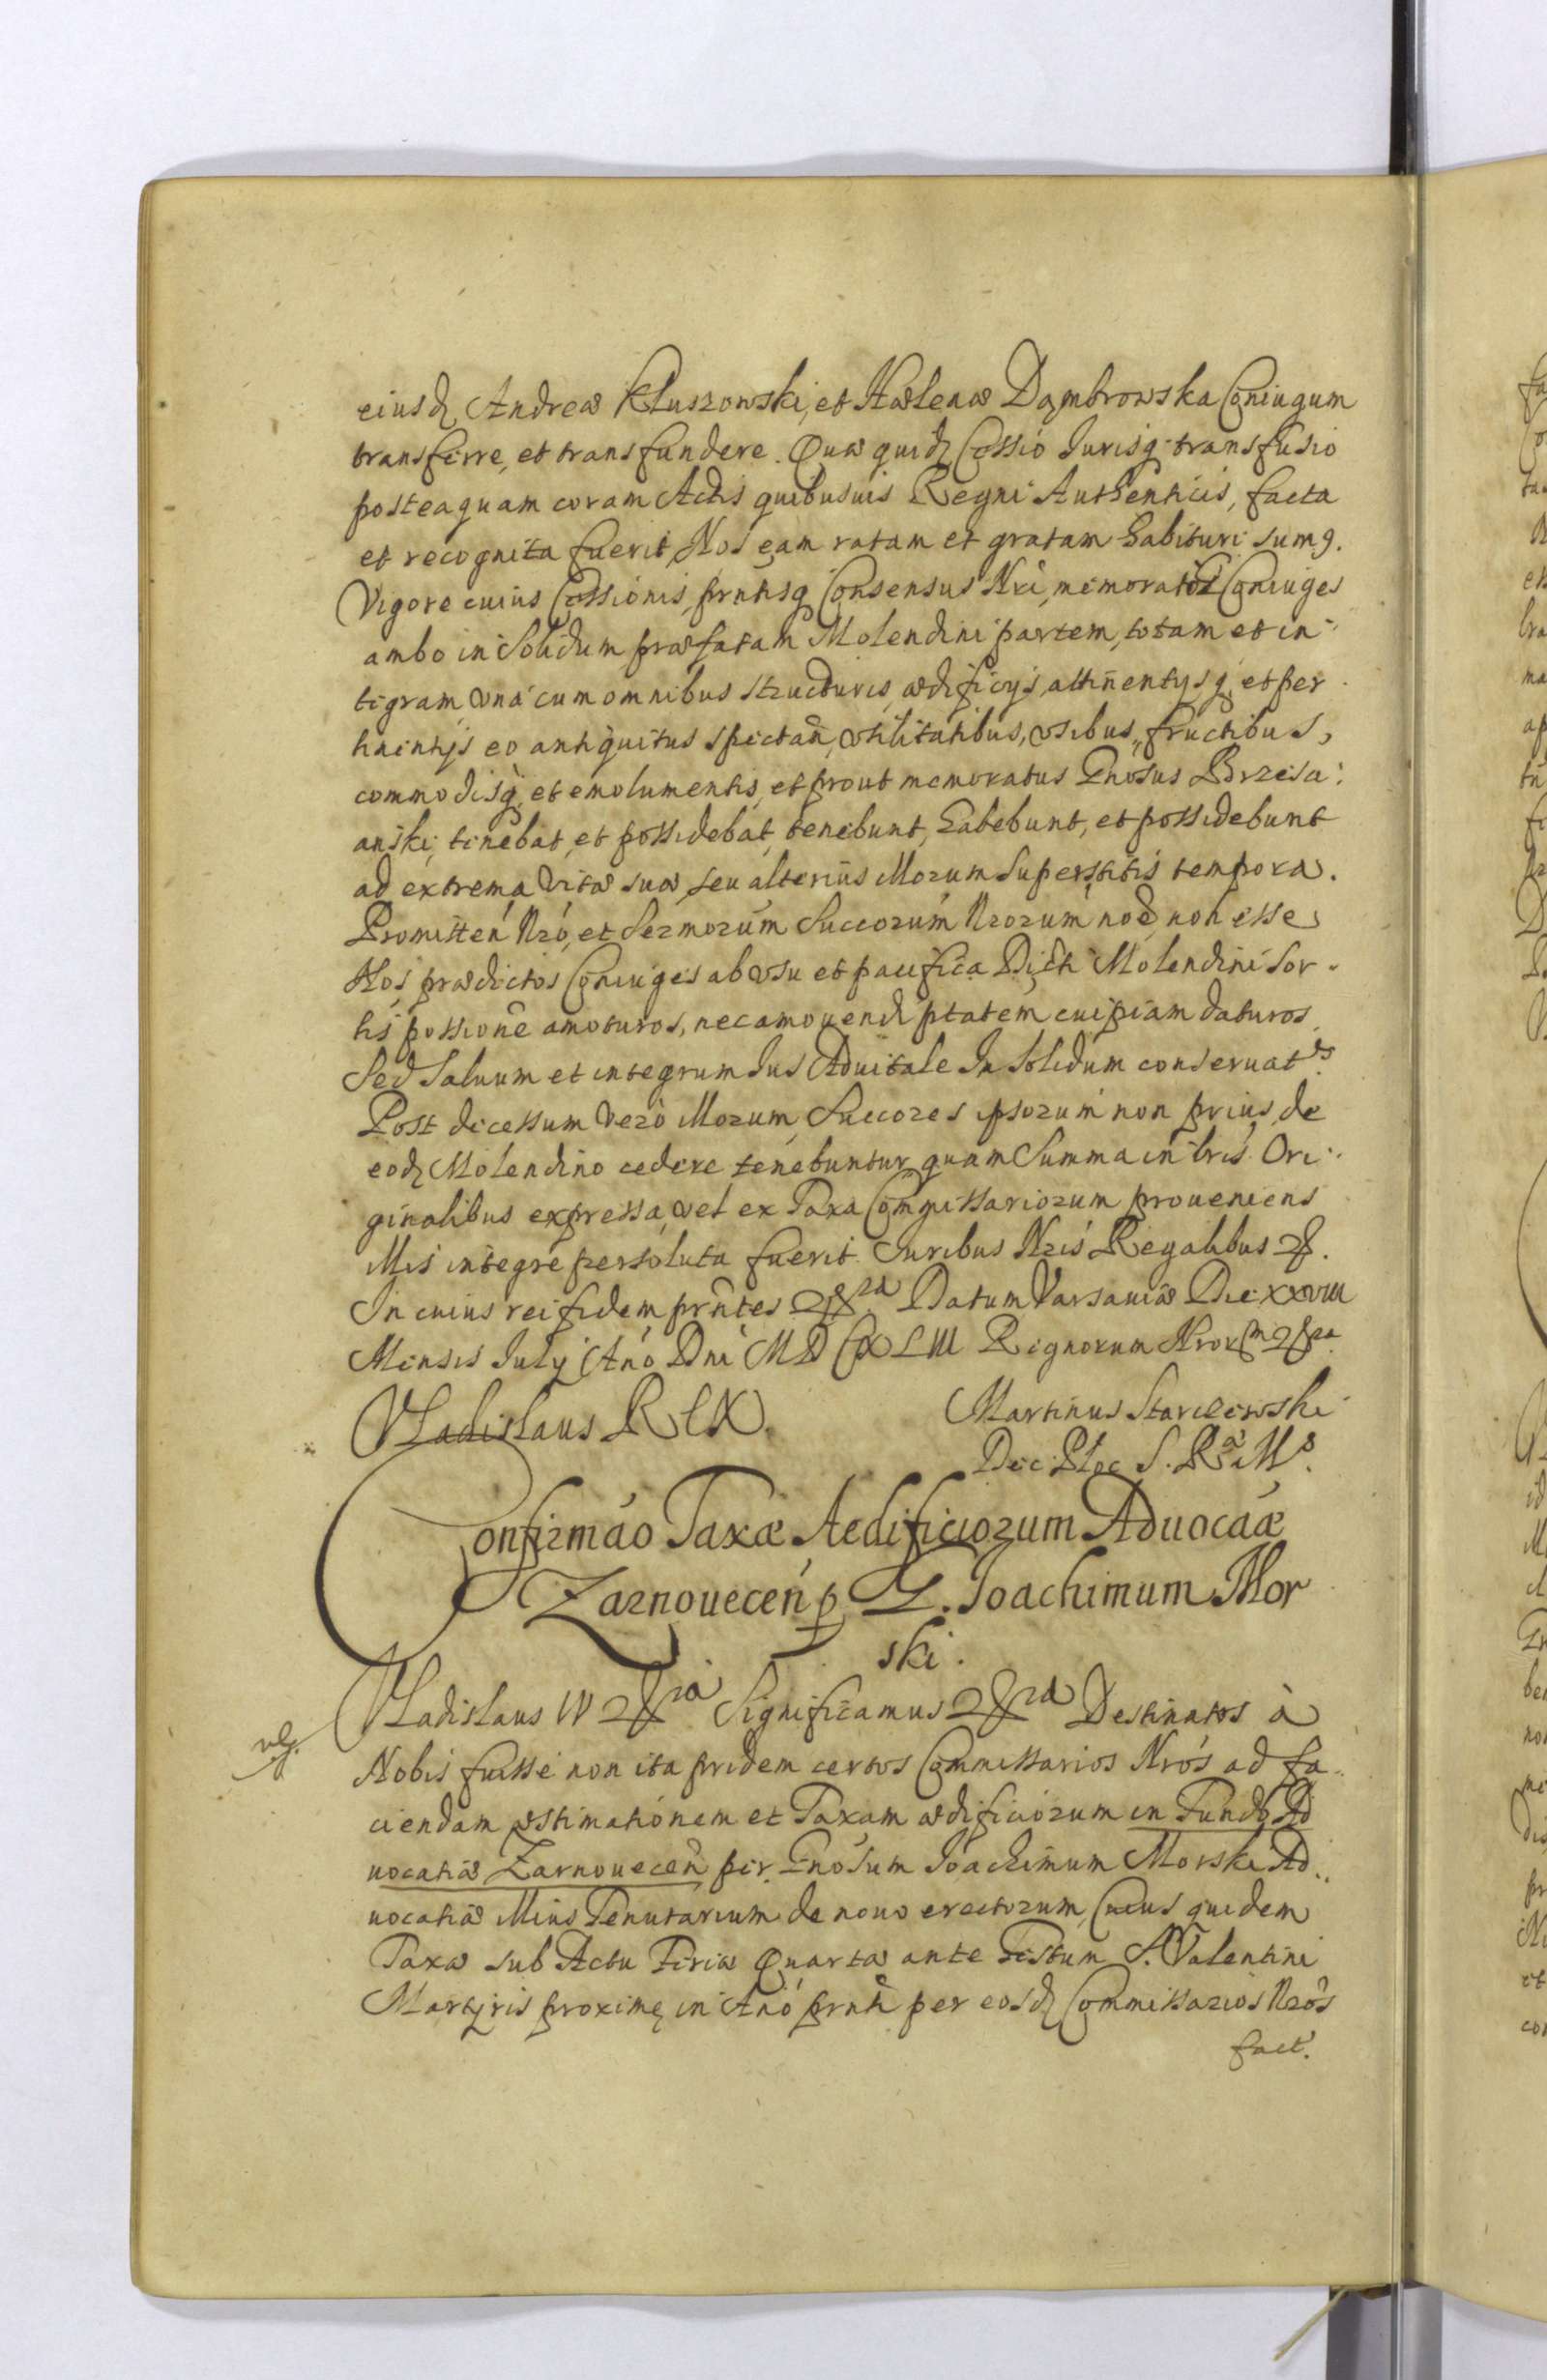 eiusd Andreæ Kluszowski, et Hælenæ Dąmbrowska Coniugum
transferre, et transfundere. Quæ quid Cessio Jurisq transfusio
posteaquam coram Actis quibusuis Regni Authenticis, facta
et recognita fuerit, Nos eam ratam et gratam habituri sum9.
Vigore cuius Cessionis, prntisq Consensus Nri, memorati Coniuges
ambo in Solidum præfatam Molendini partem, totam et in-
tegram, vna cum omnibus structuris, ædificijs, attinentysq, et per
tinentijs eo antiquitus spectan, vtilitatibus, vsibus, fructibus,
commodisq, et emolumentis, et prout memoratus Gnosus Brzesa:
anski, tenebat, et possidebat, tenebunt, habebunt, et possidebunt
ad extrema vitæ suæ, seu alterius Illorum superstitis tempora.
Promitten Nro, et Sermorum Succorum Nrorum noe, non esse
Nos prædictos Coniuges ab vsu et pacifica Dicti Molendini Sor-
tis possione amoturos, nec amouendi ptatem cuipiam daturos
Sed Saluum et integrum Jus Aduitale In Solidum conseruat os.
Post decessum vero Illorum, Succores ipsorum non prius de
eod Molendino cedere tenebuntur, quam Summa in lris Ori-
ginalibus expressa, vel ex Taxa Commissariorum proueniens
Illis integre persoluta fuerit. Juribus Nris Regalibus &.
In cuius rei fidem prntes & ra Datum Varsauiæ Die XXVIII
Mensis July Ano Dni MDCXLIII Regnorum Nror m & ra
Vladislaus REX. Martinus Starczewski
Dec: Ploc S. R a M s.
Confirmao Taxæ Aedificiorum Aduocaæ
Zarnouecen p G. Joachimum Mor
ski.
Vladislaus IV & ra Significamus & ra Destinatos à
Nobis fuisse non ita pridem certos Commissarios Nros ad fa-
ciendam æstimationem et Taxam ædificiorum in Fundo Ad
uocatiæ Zarnouecen per Gnosum Joachimum Morski Ad-
uocatiæ Illius Tenutarium de nouo erectorum, Cuius quidem
Taxæ sub Actu Feria Quarta ante Festum S. Valentini
Martyris proxime in Ano prnti per eosd Commissarios Nros
fact.